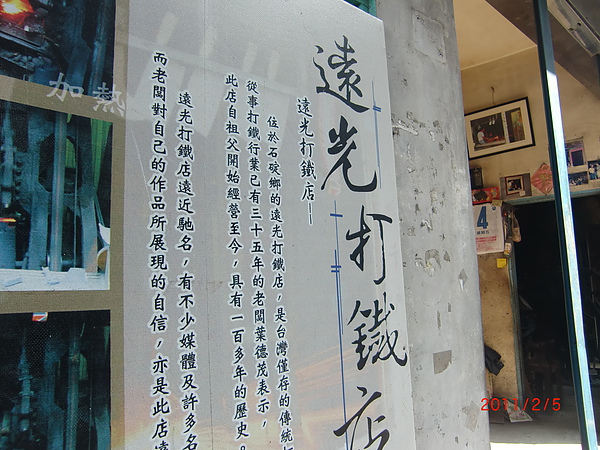 遠光打鐵店
遠光打鐵店—
位於石碇鄉的遠光打鐵店，是台灣僅存的傳統
從事打鐵行業已有三十五年的老闆葉德茂表示，
此店自祖父開始經營至今，具有一百多年的歷史。
遠光打鐵店遠近馳名，有不少媒體及許多名
而老闆對自己的作品所展現的自信，亦是此店遠
加熱
4
2011/2/5